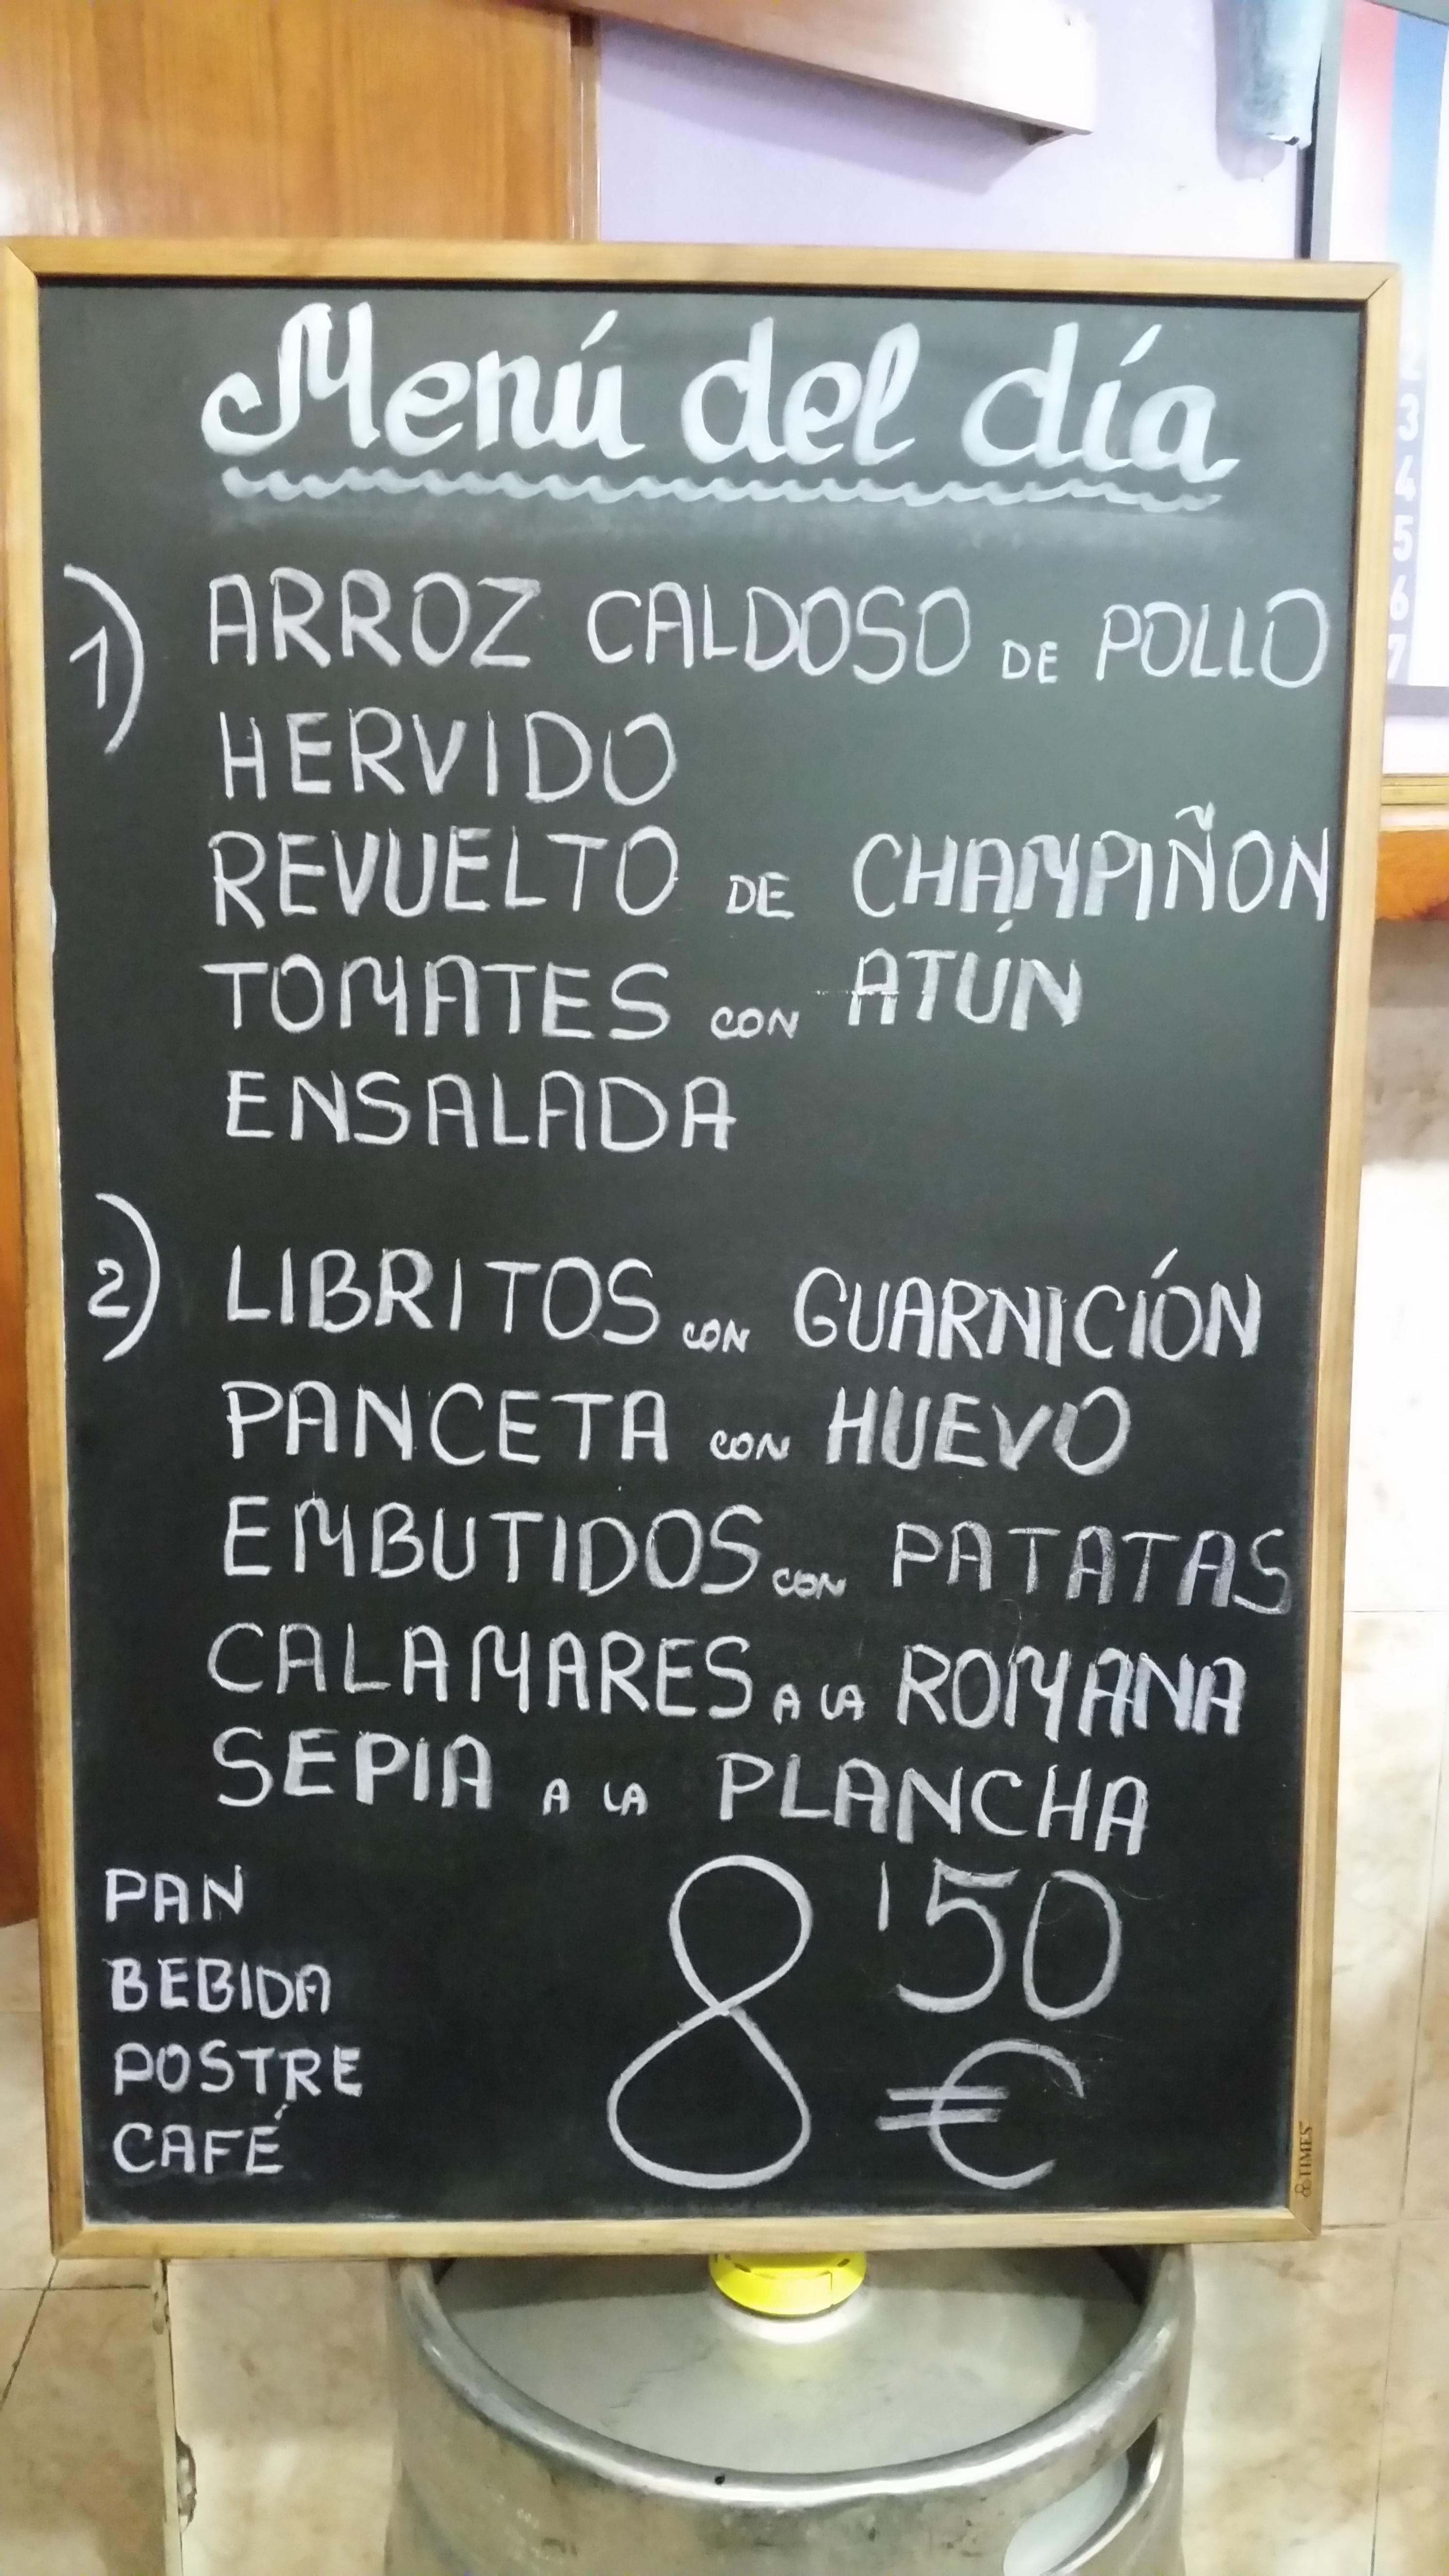 Menú del día
1) ARROZ CALDOSO DE POLLO
HERVIDO
REVUELTO DE CHAMPIÑON
TOMATES CON ATÚN
ENSALADA
2) LIBRITOS CON GUARNICÍON
PANCETA CON HUEVO
EMBUTIDOS CON PATATAS
CALAMARES A LA ROMANA
SEPIA A LA PLANCHA
PAN
BEBIDA
POSTRE
CAFÉ
8'50
€
TIMES
3
4
5
6
7